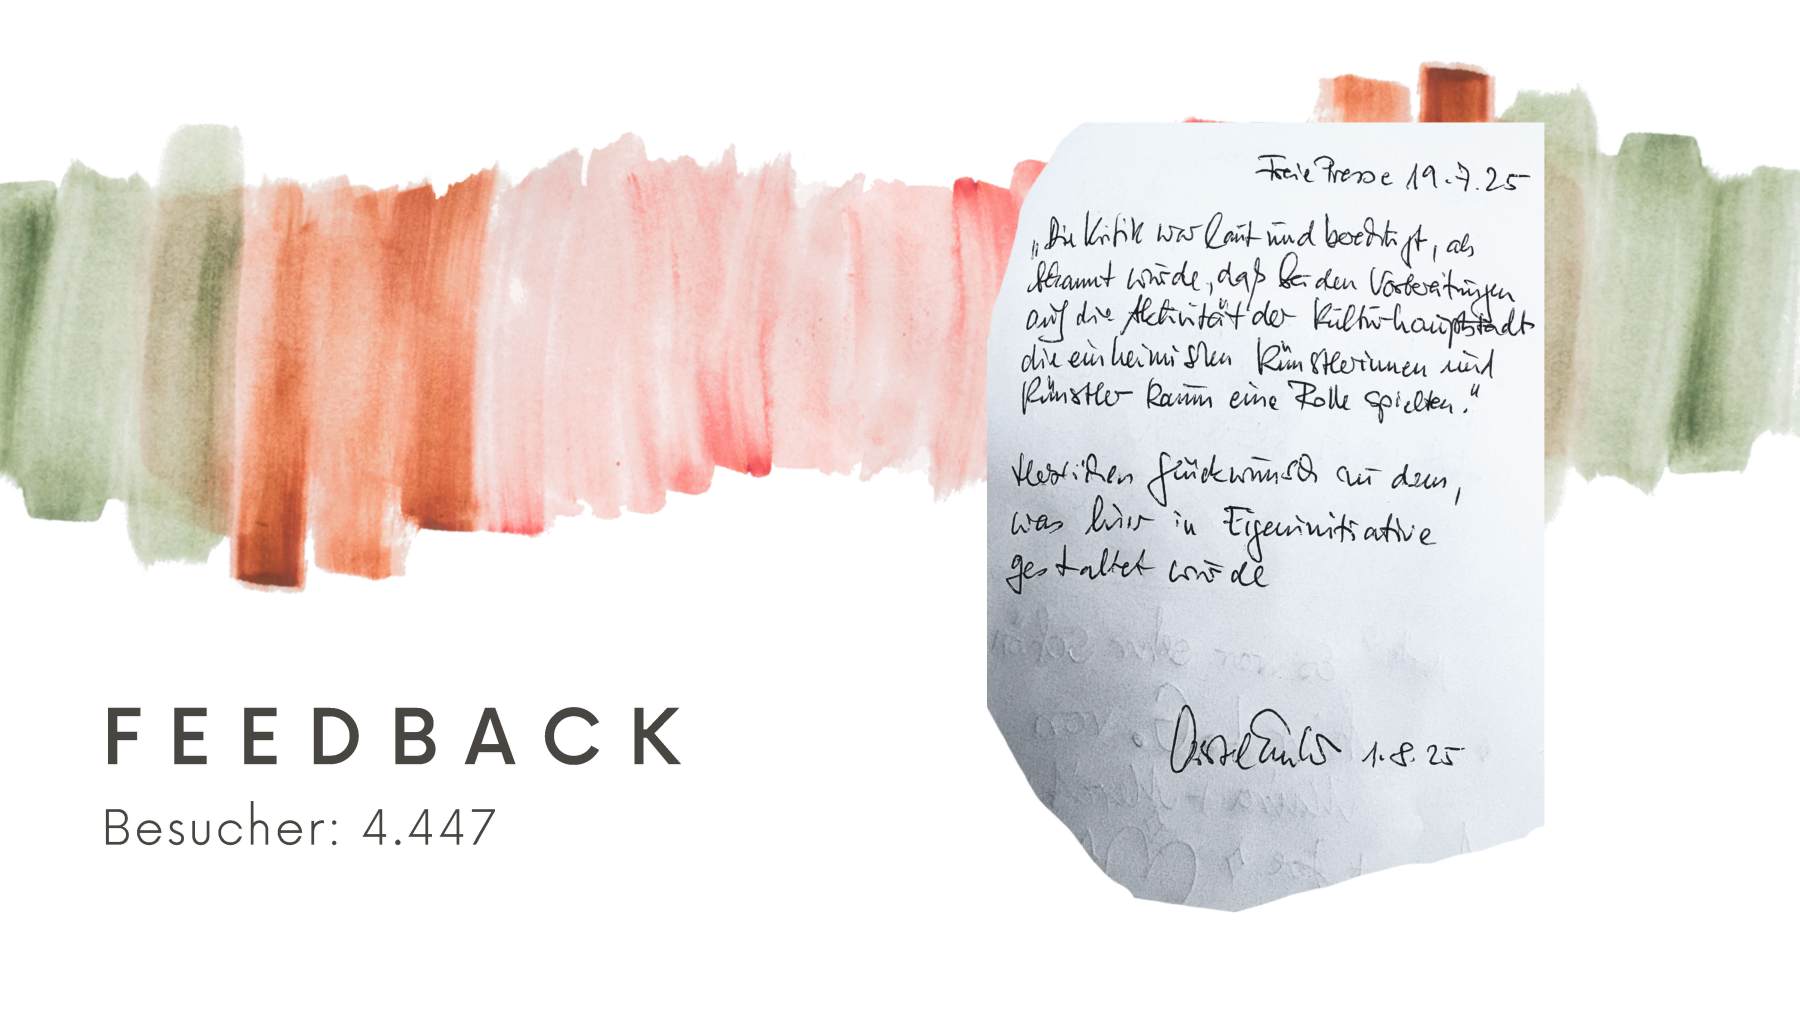 Freie Presse 19.7.25
„Die Kritik war laut und berechtigt, als
bekannt wurde, daß bei den Vorbereitungen
auf die Aktivität der Kulturhauptstadt
die einheimischen Künstlerinnen und
Künstler kaum eine Rolle spielten.“
Herzlichen Glückwunsch zu dem,
was hier in Eigeninitiative
gestaltet wurde
1.8.25
FEEDBACK
Besucher: 4.447